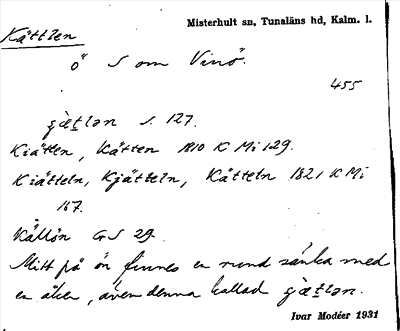 Misterhult sn, Tunaläns hd, Kalm. l.
Kättlen
ö S om Vinö.
455
S. 127.
Kiätten, Kätten 1810 K Mi 129.
Kiätteln, Kjätteln, Kätteln 1821 K Mi
167.
Kållön GS 29.
Mitt på ön finnes en rund sänka med
en åker, även denna kallad
Ivar Modéer 1931